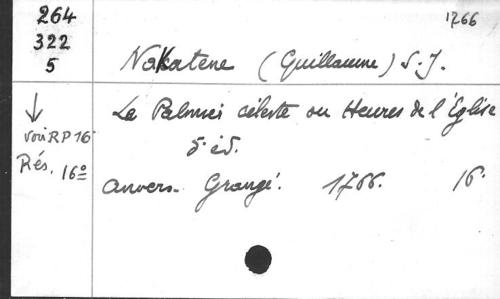 264
322
5
1766
Nakatene (Guillaume) S.J.
↓
voir RP 16
Rés. 16º
Le Palmier céleste ou Heures de l'Église
5e éd.
Anvers. Grangé. 1766. 16.